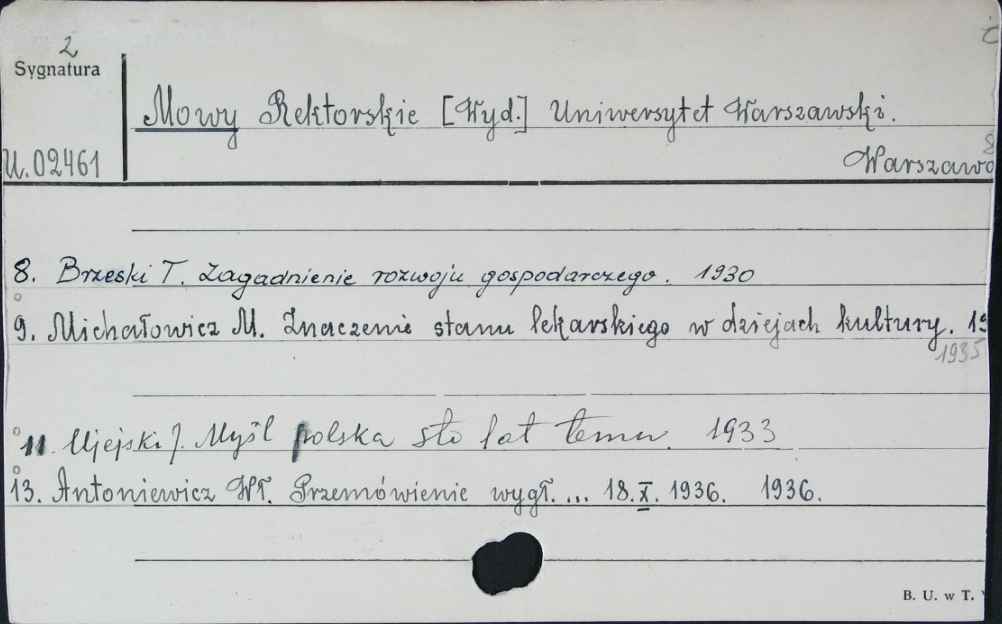 2
Sygnatura
Mowy Rektorskie [Wyd.] Uniwersytet Warszawski.
U.02461
8
Warszawa
8. Brzeski T. Zagadnienie rozwoju gospodarczego. 1930
9. Michałowicz M. Znaczenie stanu lekarskiego w dziejach kultury. 19
1935
11. Ujejski J. Myśl polska sto lat temu. 1933
13. Antoniewicz Wł. Przemówienie wygł. ... 18.X. 1936. 1936.
B. U. w T.